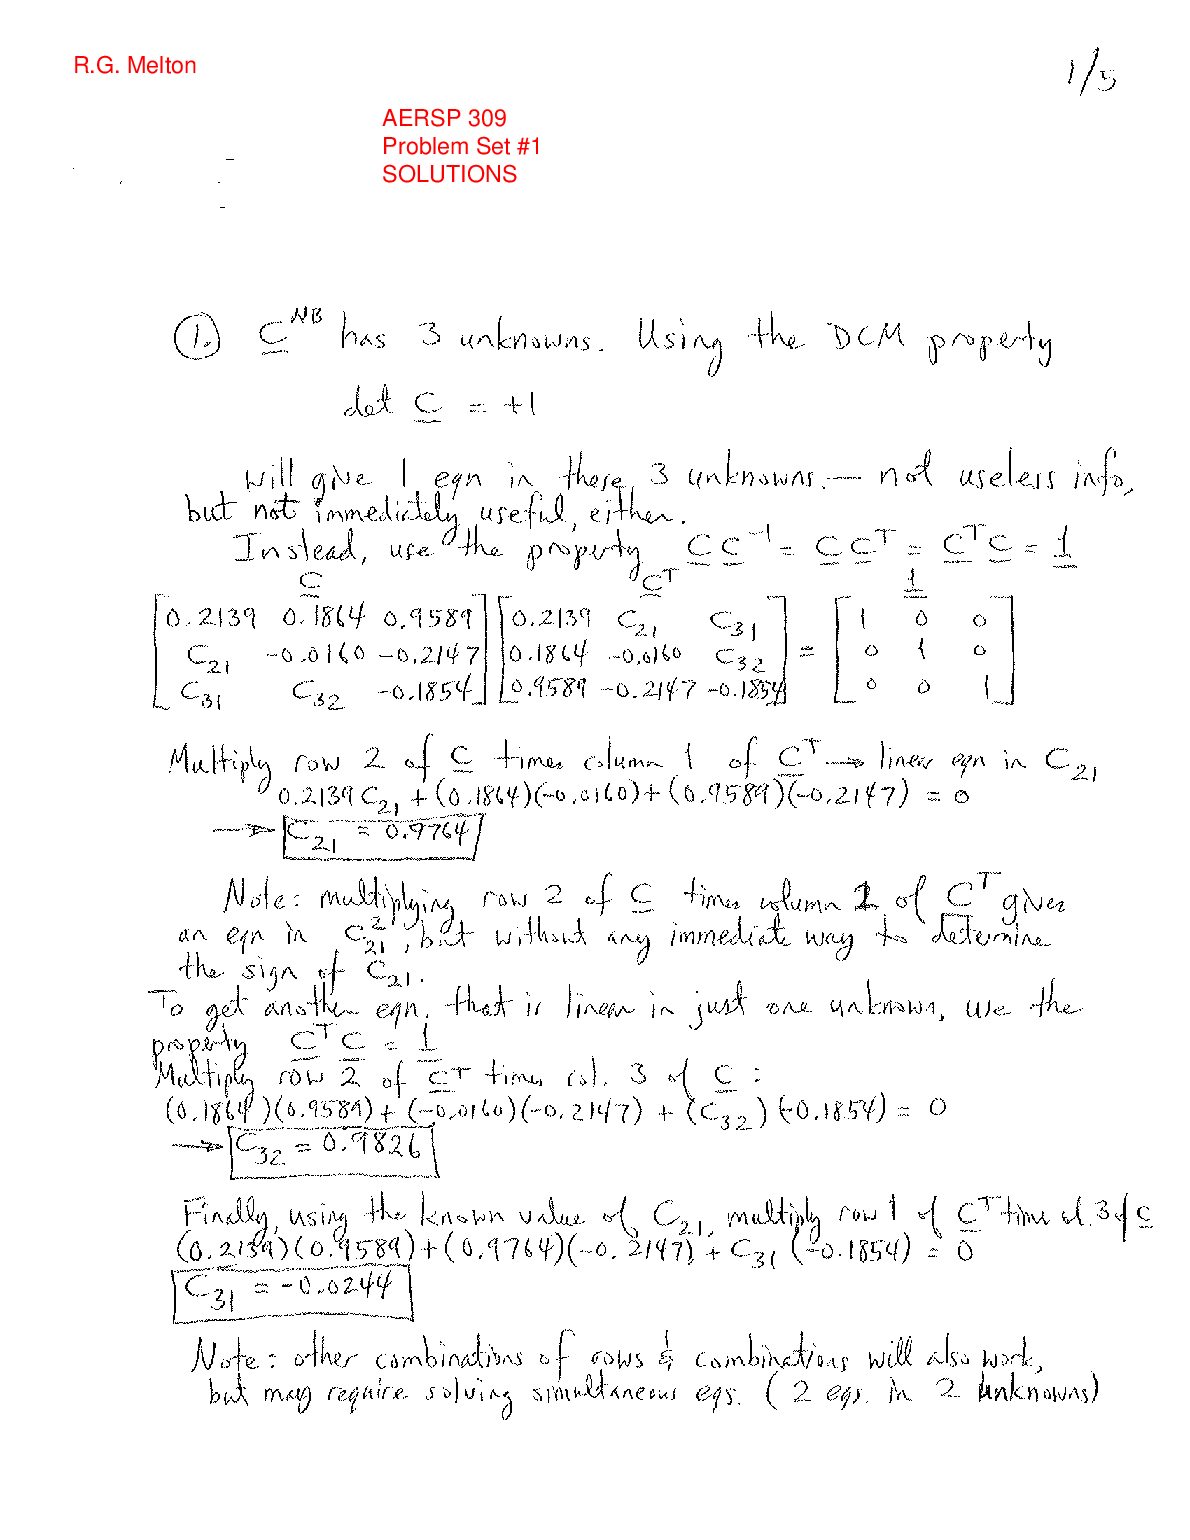 R.G. Melton
1/5
AERSP 309
Problem Set #1
SOLUTIONS
1. C^NB has 3 unknowns. Using the DCM property
det C = +1
will give 1 eqn in these 3 unknowns. — not useless info,
but not immediately useful, either.
Instead, use the property C C^-1 = C C^T = C^T C = 1
C C^T 1
[0.2139 0.1864 0.9589] [0.2139 C21 C31] [1 0 0]
[C21 -0.0160 -0.2147] [0.1864 -0.0160 C32] = [0 1 0]
[C31 C32 -0.1854] [0.9589 -0.2147 -0.1854] [0 0 1]
Multiply row 2 of C times column 1 of C^T → linear eqn in C21
0.2139 C21 + (0.1864)(-0.0160) + (0.9589)(-0.2147) = 0
→ C21 = 0.9764
Note: multiplying row 2 of C times column 2 of C^T gives
an eqn in C21^2, but without any immediate way to determine
the sign of C21.
To get another eqn. that is linear in just one unknown, use the
property C^T C = 1
Multiply row 2 of C^T times col. 3 of C:
(0.1864)(0.9589) + (-0.0160)(-0.2147) + (C32)(-0.1854) = 0
→ C32 = 0.9826
Finally, using the known value of C21, multiply row 1 of C^T times col. 3 of C
(0.2139)(0.9589) + (0.9764)(-0.2147) + C31 (-0.1854) = 0
C31 = -0.0244
Note: other combinations of rows & combinations will also work,
but may require solving simultaneous eqs. (2 eqs. in 2 unknowns)